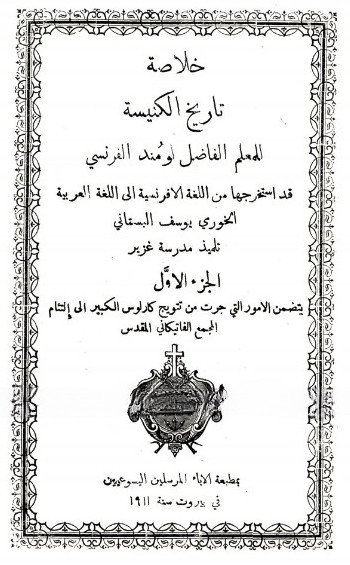 خلاصة
تاريخ الكنيسة
للمعلم الفاضل لومُند الفرنسي
قد استخرجها من اللغة الافرنسية الى اللغة العربية
الخوري يوسف البستاني
تلميذ مدرسة غزير
الجزء الاوَّل
يتضمن الامور التي جرت من تتويج كارلوس الكبير الى إلتئام
المجمع الفاتيكاني المقدس
بمطبعة الاباء المرسلين اليسوعيين
في بيروت سنة ١٩١١